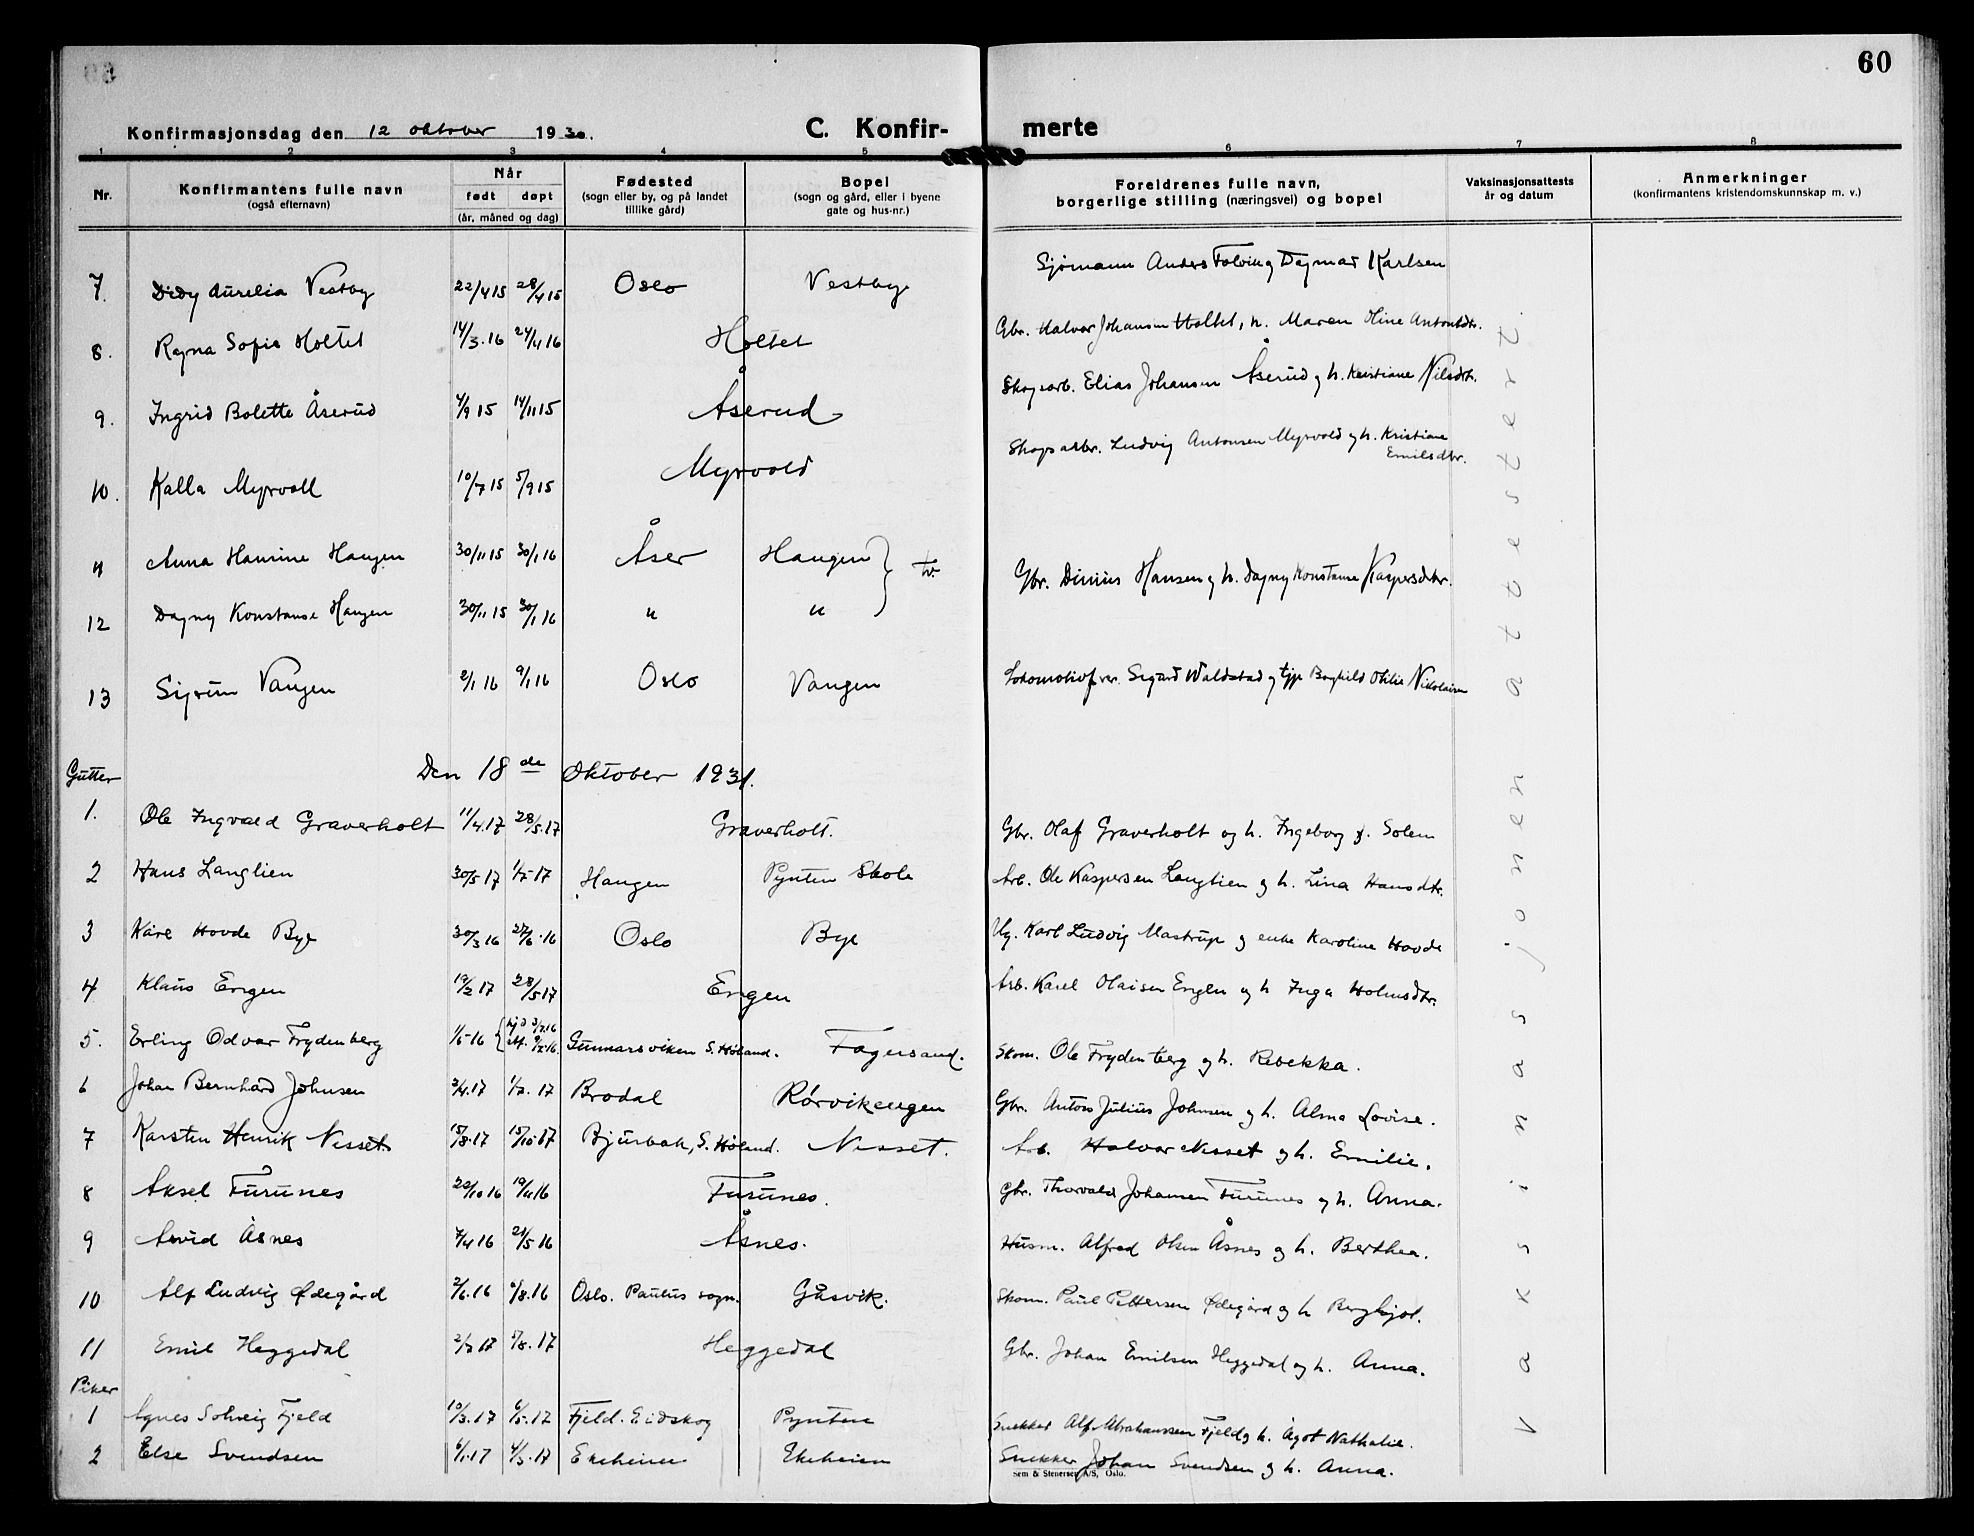 60
Konfirmasjonsdag den 12 oktober 1930.
C. Konfir- merte
1 2 3 4 5 6 7 8
Nr.
Konfirmantens fulle navn
(også efternavn)
Når
født døpt
(år, måned og dag)
Fødested
(sogn eller by, og på landet
tillike gård)
Bopel
(sogn og gård, eller i byene
gate og hus-nr.)
Foreldrenes fulle navn,
borgerlige stilling (næringsvei) og bopel
Vaksinasjonsattests
år og datum
Anmerkninger
(konfirmantens kristendomskunnskap m. v.)
7. Didy Aurelia Vestby 22/4 15 28/4 15 Oslo Vestby Sjømann Anders Dagmar Karlsen
8. Ragna Sofie Holtet 14/3.16 24/4 16 Holtet Gbr. Halvor Johansen Holtet, h. Maren Oline Antonsdtr.
9. Ingrid Bolette Åserud 4/9 15 14/11 15 Åserud Skogsarb. Elias Johansen Åserud og h. Kristiane Nilsdtr.
10. Kalla Myrvoll 10/7 15 5/9 15 Myrvold Skogsarbr. Ludvig Antonsen Myrvold og h. Kristiane
Emilsdtr.
11 Anna Haurine Haugen 30/11 15 30/1 16 Åser Haugen } tv. Gbr. Dinius Hansen og h. Dagny Konstanse Kaspersdtr.
12 Dagny Konstanse Haugen 30/11 15 30/1 16 " "
13 Sigrun Vangen 2/1 16 9/1 16 Oslo Vangen Lokomotivfyr. Sigurd Waldstad og tjp Borghild Otilie Nikolaisen
Gutter Den 18de Oktober 1931.
1. Ole Ingvald Graverholt 11/4.17 28/5.17 Graverholt. Gbr. Olaf Graverholt og h. Ingeborg f. Solem
2 Hans Langlien 30/5 17 1/7 17 Haugen Pynten Skole Arb. Ole Kaspersen Langlien og h. Lina Hansdtr.
3 Kåre Hovde Bye 30/3 16 27/6.16 Oslo Bye Ug. Karl Ludvig Mastrup og enke Karoline Hovde
4 Klaus Engen 19/2 17 28/5 17 Engen Arb. Karel Olaisen Engen og h Inga Holmsdtr.
5. Erling Odvar Frydenberg 1/5 16 { hjd 3/7.16
Gunnarsviken S. Høland. Fagersand. Skom. Ole Frydenberg og h. Rebekka.
6 Johan Bernhard Johnsen 3/4.17 1/7. 17 Brodal Rørvikengen Gbr. Anton Julius Johnsen og h. Alma Lovise.
7 Karsten Henrik Nesset. 15/8.17 15/10.17 Bjurbak, S. Høland. Nesset. Arb. Halvor Nesset og h. Emilie.
8 Aksel Furunes 20/10 16 19/11 16 Furunes. Gbr. Thorvald Johansen Furunes og h. Anna.
9 Arvid Åsnes 7/4 16 21/5 16 Åsnes. Husm. Alfred Olsen Åsnes og h. Berthea.
10 Alf Ludvig Ødegård 2/6.16 6/8.16 Oslo. Paulus sogn. Gåsvik. Skom. Paul Pettersen Ødegård og h Bergljot.
11 Emil Heggedal 2/7 17 5/8.17 Heggedal Gbr. Johan Emilsen Heggedal og h. Anna.
Piker
1 Agnes Solveig Fjeld 10/3.17 6/5.17 Fjeld. Eidskog Pynten Snekker Alf Abrahamsen Fjeld og h. Ågot Nathalie.
2 Else Svendsen 6/1.17 4/3.17 Ekeheien Ekeheien Snekker Johan Svendsen og h. Anna.
Vaksinasjonen attestert.
Sem & Stenersen A/S, Oslo.